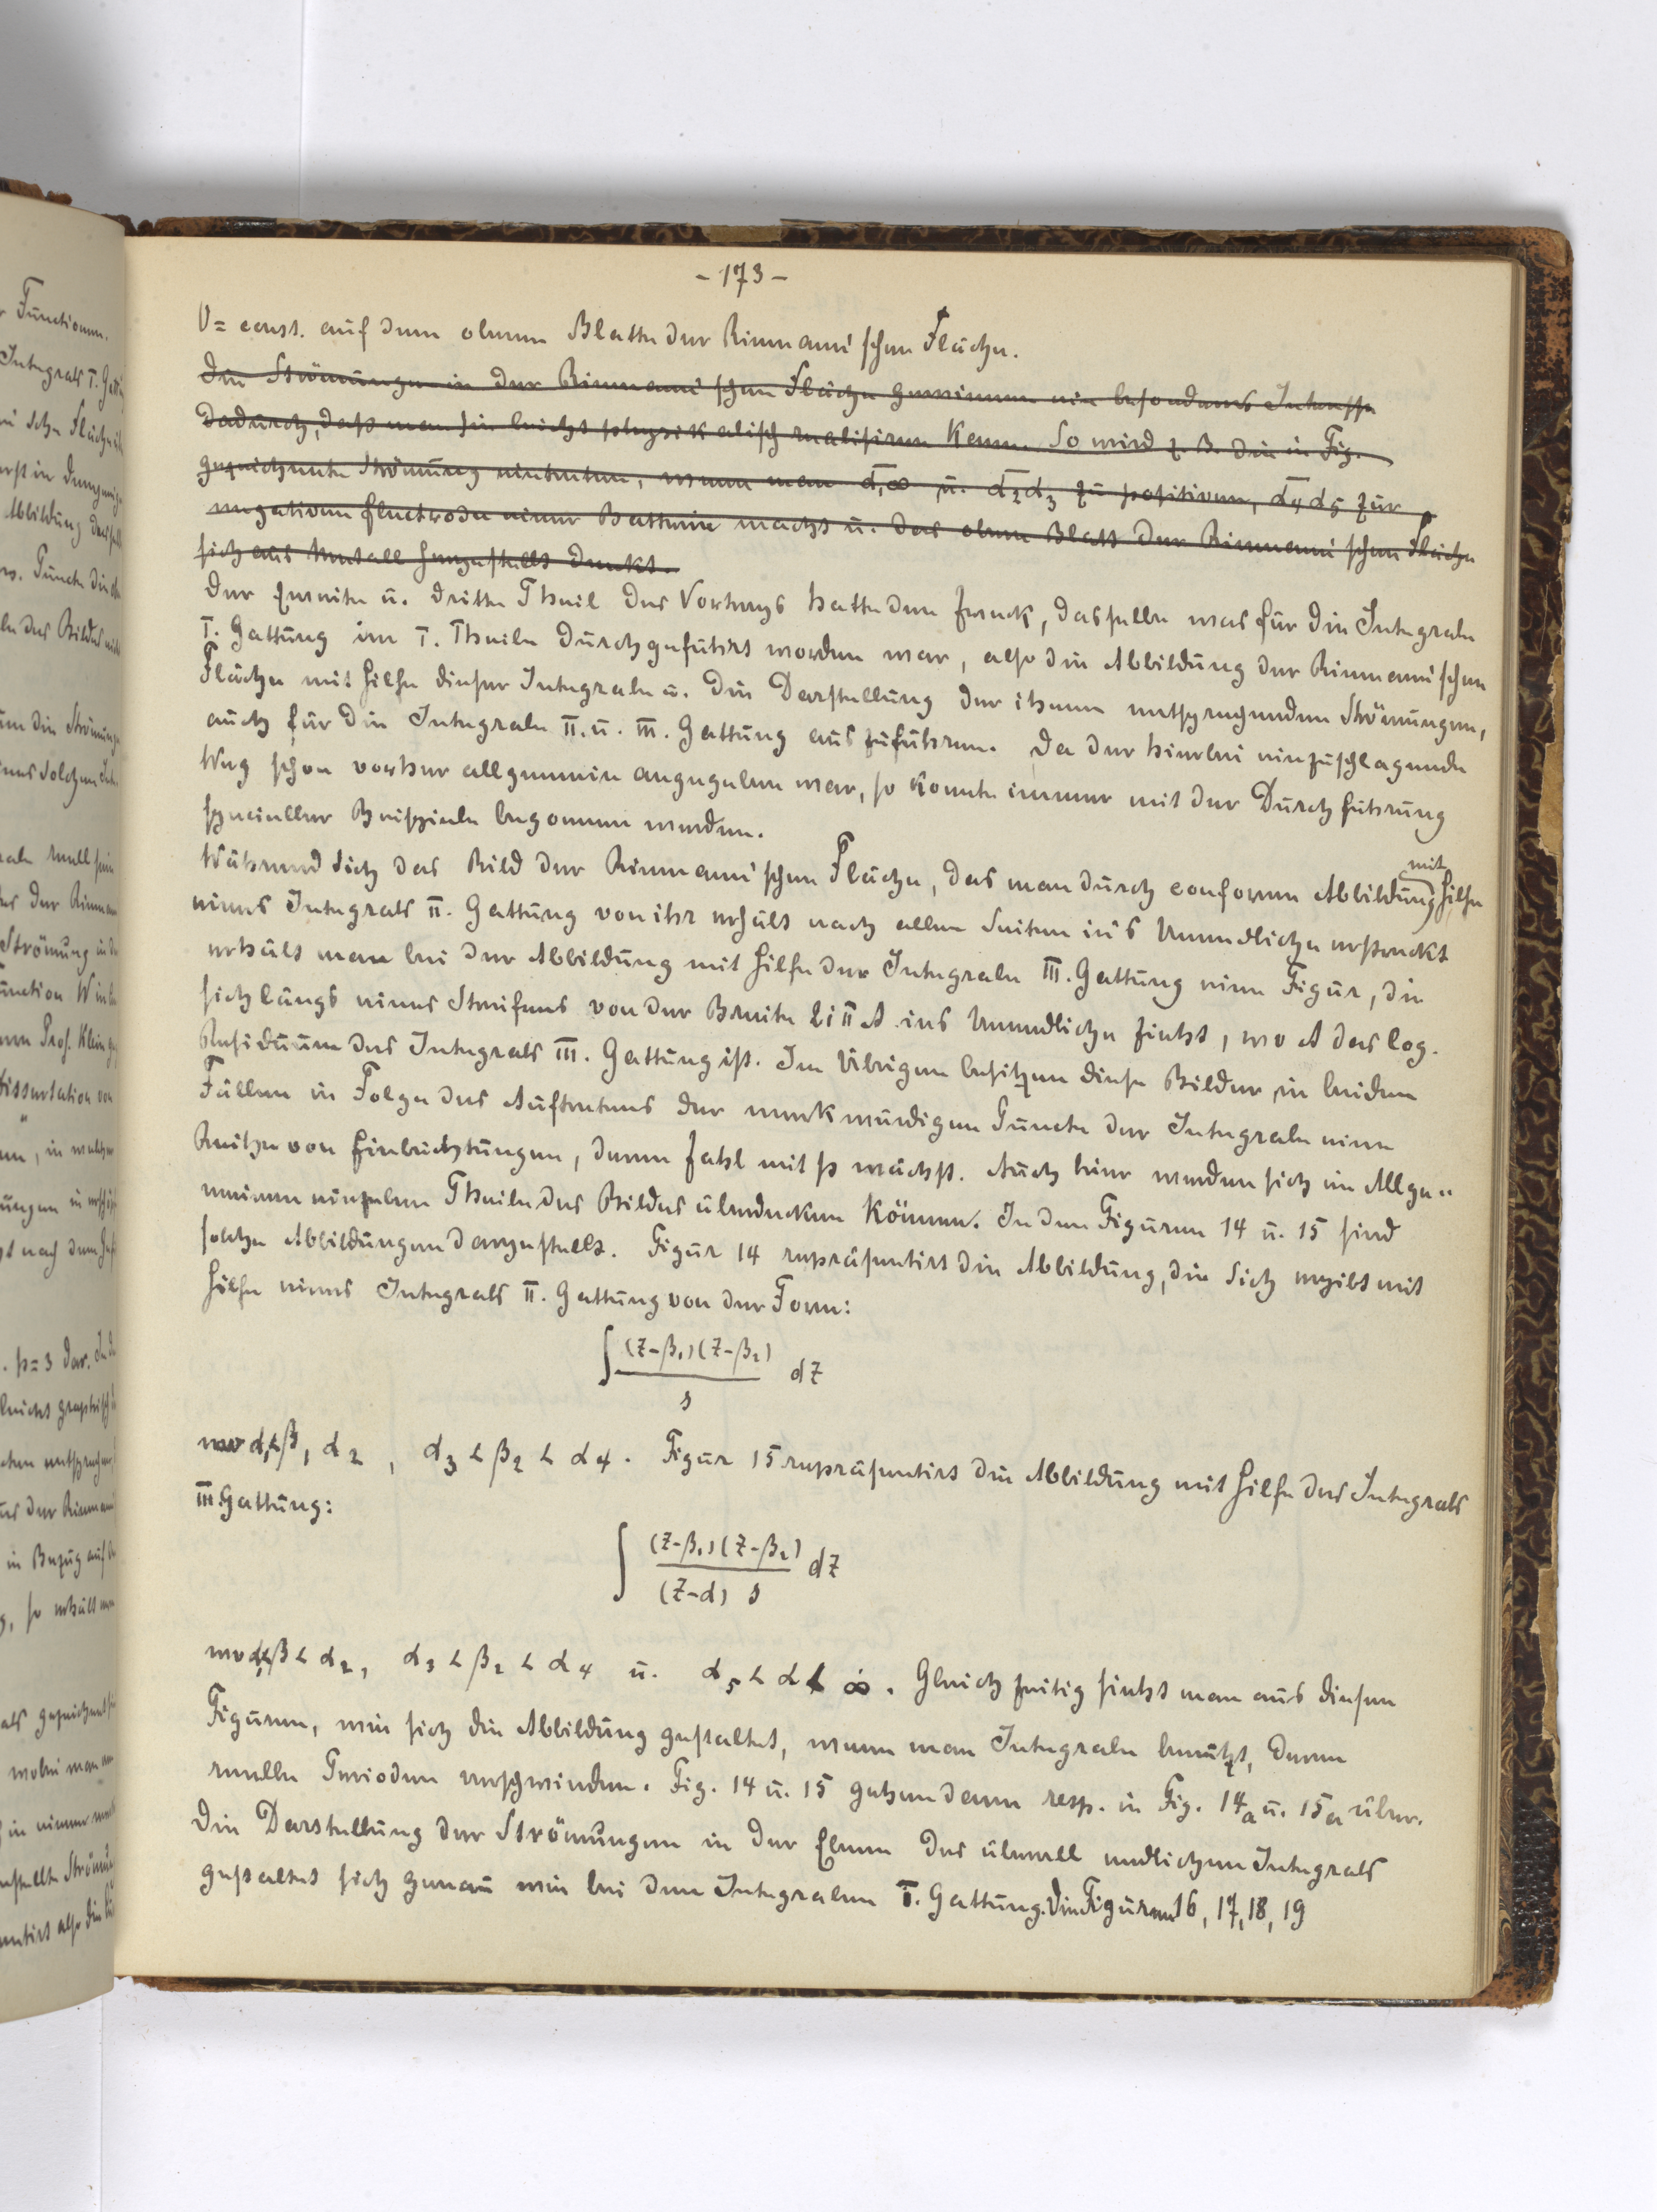 - 173 -
V = const. auf dem oberen Blatte der Riemann'schen Fläche.
Die Strömungen in der Riemann'schen Fläche gewinnen ein besonderes Interesse
dadurch, daß man sie leicht physikalisch realisiren kann. So wird z. B. die in Fig.
gezeichnete Strömung eintreten, wenn man α₁∞ u. α₂α₃ zu positiven, α₄α₅ zur
negativen Electrode einer Batterie macht u. das obere Blatt der Riemann'schen Fläche
sich aus Metall hergestellt denkt.
Der zweite u. dritte Theil des Vortrags hatte den Zweck, dasselbe was für die Integrale
I. Gattung im I. Theile durchgeführt worden war, also die Abbildung der Riemann'schen
Fläche mit Hilfe dieser Integrale u. die Darstellung der ihnen entsprechenden Strömungen,
auch für die Integrale II. u. III. Gattung auszuführen. Da der hierbei einzuschlagende
Weg schon vorher allgemein angegeben war, so konnte immer mit der Durchführung
specieller Beispiele begonnen werden.
Während sich das Bild der Riemann'schen Fläche, das man durch conforme Abbildung mit Hilfe
eines Integrals II. Gattung von ihr erhält nach allen Seiten in's Unendliche erstreckt
erhält man bei der Abbildung mit Hilfe der Integrale III. Gattung eine Figur, die
sich längs eines Streifens von der Breite 2iπA ins Unendliche zieht, wo A das log.
Residuum des Integrals III. Gattung ist. Im Übrigen besitzen diese Bilder in beiden
Fällen in Folge des Auftretens der merkwürdigen Puncte der Integrale eine
Reihe von Einbuchtungen, deren Zahl mit p wächst. Auch hier werden sich im Allge=
meinen einzelne Theile des Bildes überdecken können. In den Figuren 14 u. 15 sind
solche Abbildungen dargestellt. Figur 14 repräsentirt die Abbildung, die sich ergibt mit
Hilfe eines Integrals II. Gattung von der Form:
∫ (z-β₁)(z-β₂) / s dz
wo α₁<β₁ α₂, α₃ < β₂ < α₄. Figur 15 repräsentirt die Abbildung mit Hilfe des Integrals
III. Gattung:
∫ (z-β₁)(z-β₂) / (z-α) s dz
wo α₁<β < α₂, α₃ < β₂ < α₄ u. α₅ < α < ∞. Gleichzeitig sieht man aus diesen
Figuren, wie sich die Abbildung gestaltet, wenn man Integrale benützt, deren
reelle Perioden verschwinden. Fig. 14 u. 15 gehen dann resp. in Fig. 14a u. 15a über.
Die Darstellung der Strömungen in der Ebene des überall endlichen Integrals
gestaltet sich genau wie bei den Integralen I. Gattung. Die Figuren 16, 17, 18, 19